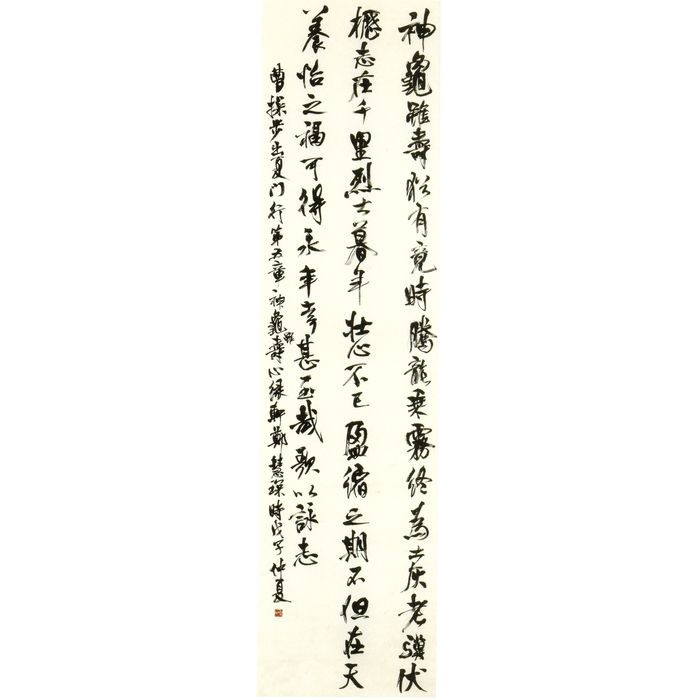 神龜雖壽猶有竟時騰龍乘霧終為土灰老驥伏
櫪志在千里烈士暮年壯心不已盈縮之期不但在天
養怡之福可得永年幸甚至哉歌以詠志
曹操步出夏门行第五章神龜雖壽心缘軒鄭慧琛時戊子仲夏